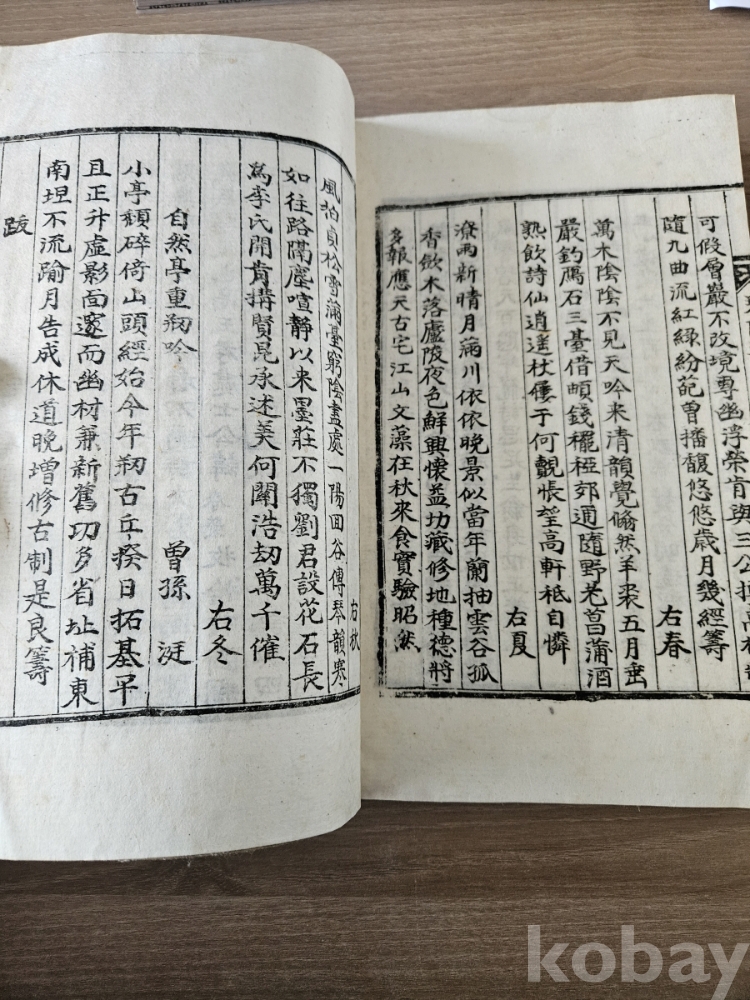 可假層巖不改境專幽浮榮肯與三公換
隨九曲流紅綠紛葩曾播馥悠悠歲月幾經籌
右春
萬木陰陰不見天吟来清韻覺翛然羊裘五月垂
嚴釣鴈石三臺借頔錢襬桎郊通隨野老菖蒲酒
熟飲詩仙逍遥杖屨于何覿悵望高軒祗自憐
右夏
潦雨新晴月滿川依依晩景似當年蘭抽雲谷孤
香飲木落廬陵夜色鮮興懷益切藏修地種德將
多報應天古宅江山文藻在秋來食實驗昭然
右秋
風泊貞松雪滿臺窮陰盡處一陽回谷傳琴韻寒
如往路隔塵喧静以来墨莊不獨劉君設花石長
爲李氏開肯搆賢昆承述美何關浩刼萬千催
右冬
自然亭重刱吟
曾孫 涏
小亭頽碎倚山頭經始今年刱古丘揆日拓基平
且正升虛影面邃而幽材兼新舊功多省址補東
南坦不流踰月告成休道晩增修古制是良籌
跋
kobay